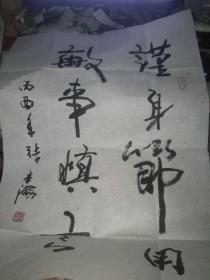 謹身節用
敏事慎言
丙酉年